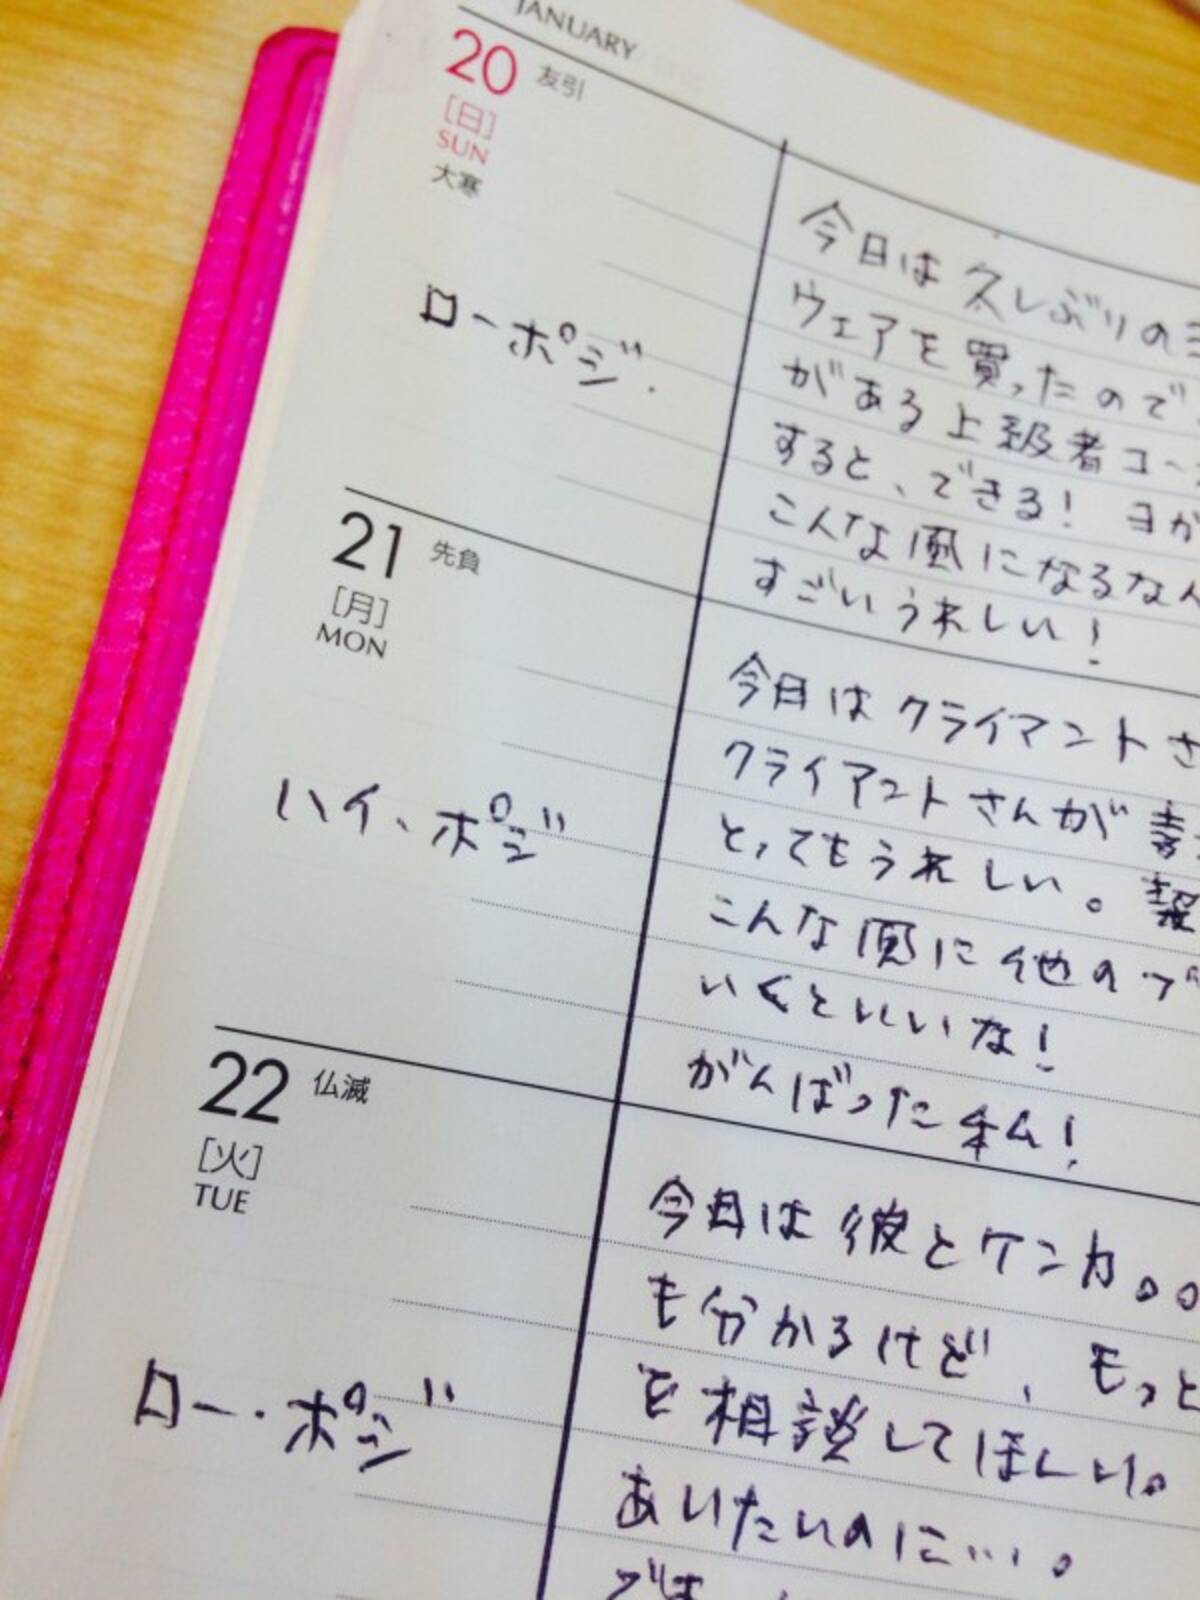 JANUARY
20 友引
[日]
SUN
大寒
ローポジ.
今日は久しぶりのヨ
ウェアを買ったので
がある上級者コー
すると、できる! ヨガ
こんな風になるなん
すごいうれしい!
21 先負
[月]
MON
ハイ、ポジ
今日はクライアントさ
クライアントさんが
とってもうれしい。契
こんな風に他の
いくといいな!
がんばった私!
22 仏滅
[火]
TUE
ロー・ポジ
今日は彼とケンカ。。
も分かるけど、もっと
を相談してほしい。
あいたいのに…。
では